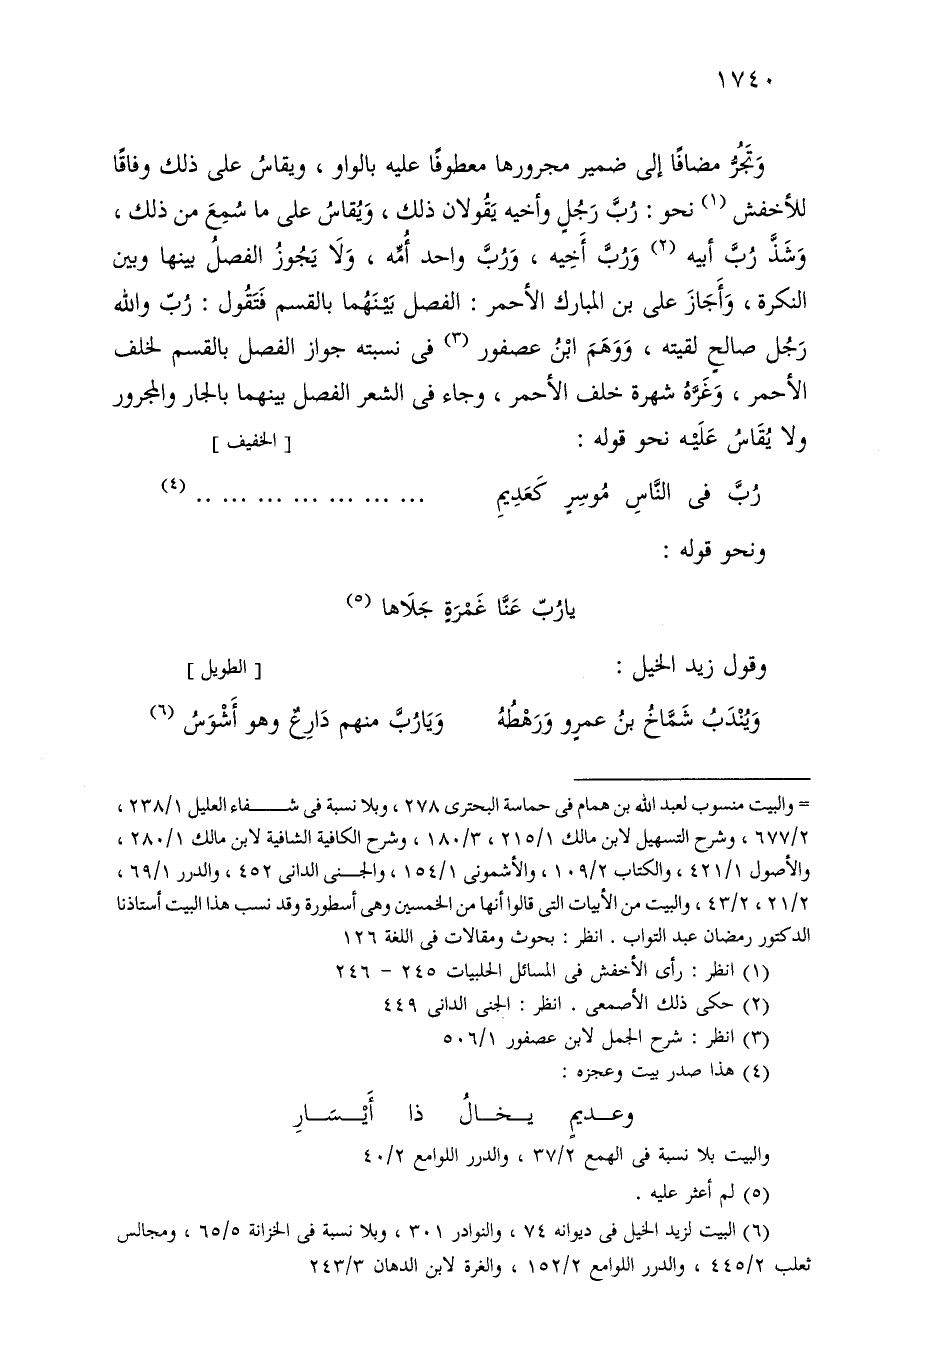 ١٧٤٠
وَتَجُرُّ مضافًا إلى ضمير مجرورها معطوفًا عليه بالواو ، ويقاسُ على ذلك وفاقًا
للأخفش (١) نحو : رُبَّ رَجُلٍ وأخيه يَقُولان ذلك ، وَيُقاسُ على ما سُمِعَ من ذلك ،
وَشَذَّ رُبَّ أبيه (٢) وَرُبَّ أَخِيه ، وَرُبَّ واحد أُمِّه ، وَلَا يَجُوزُ الفصلُ بينها وبين
النكرة ، وَأَجَازَ على بن المبارك الأحمر : الفصل بَيْنَهُما بالقسم فَتَقُول : رُبّ والله
رَجُل صالحٍ لقيته ، وَوَهَمَ ابْنُ عصفور (٣) فى نسبته جواز الفصل بالقسم لخلف
الأحمر ، وَغَرَّهُ شهرة خلف الأحمر ، وجاء فى الشعر الفصل بينهما بالجار والمجرور
ولا يُقَاسُ عَلَيْه نحو قوله : [ الخفيف ]
رُبَّ فى النَّاسِ مُوسِرٍ كَعَدِيمِ ... ... ... ... ... ... .. (٤)
ونحو قوله :
يارُبّ عَنَّا غَمْرَةٍ جَلَاها (٥)
وقول زيد الخيل : [ الطويل ]
وَيُنْدَبُ شَمَّاخُ بنُ عمرٍو وَرَهْطُهُ وَيَارُبَّ منهم دَارِعٌ وهو أَشْوَسُ (٦)
= والبيت منسوب لعبد الله بن همام فى حماسة البحترى ٢٧٨ ، وبلا نسبة فى شـــــفاء العليل ٢٣٨/١ ،
٦٧٧/٢ ، وشرح التسهيل لابن مالك ٢١٥/١ ، ١٨٠/٣ ، وشرح الكافية الشافية لابن مالك ٢٨٠/١ ،
والأصول ٤٢١/١ ، والكتاب ١٠٩/٢ ، والأشمونى ١٥٤/١ ، والجـــنى الدانى ٤٥٢ ، والدرر ٦٩/١ ،
٢١/٢ ، ٤٣/٢ ، والبيت من الأبيات التى قالوا أنها من الخمسين وهى أسطورة وقد نسب هذا البيت أستاذنا
الدكتور رمضان عبد التواب . انظر : بحوث ومقالات فى اللغة ١٢٦
(١) انظر : رأى الأخفش فى المسائل الحلبيات ٢٤٥ – ٢٤٦
(٢) حكى ذلك الأصمعى . انظر : الجنى الدانى ٤٤٩
(٣) انظر : شرح الجمل لابن عصفور ٥٠٦/١
(٤) هذا صدر بيت وعجزه :
وعـــديمٍ يـــخـــالُ ذا أَيْـــسَـــارِ
والبيت بلا نسبة فى الهمع ٣٧/٢ ، والدرر اللوامع ٤٠/٢
(٥) لم أعثر عليه .
(٦) البيت لزيد الخيل فى ديوانه ٧٤ ، والنوادر ٣٠١ ، وبلا نسبة فى الخزانة ٦٥/٥ ، ومجالس
ثعلب ٤٤٥/٢ ، والدرر اللوامع ١٥٢/٢ ، والغرة لابن الدهان ٢٤٣/٣